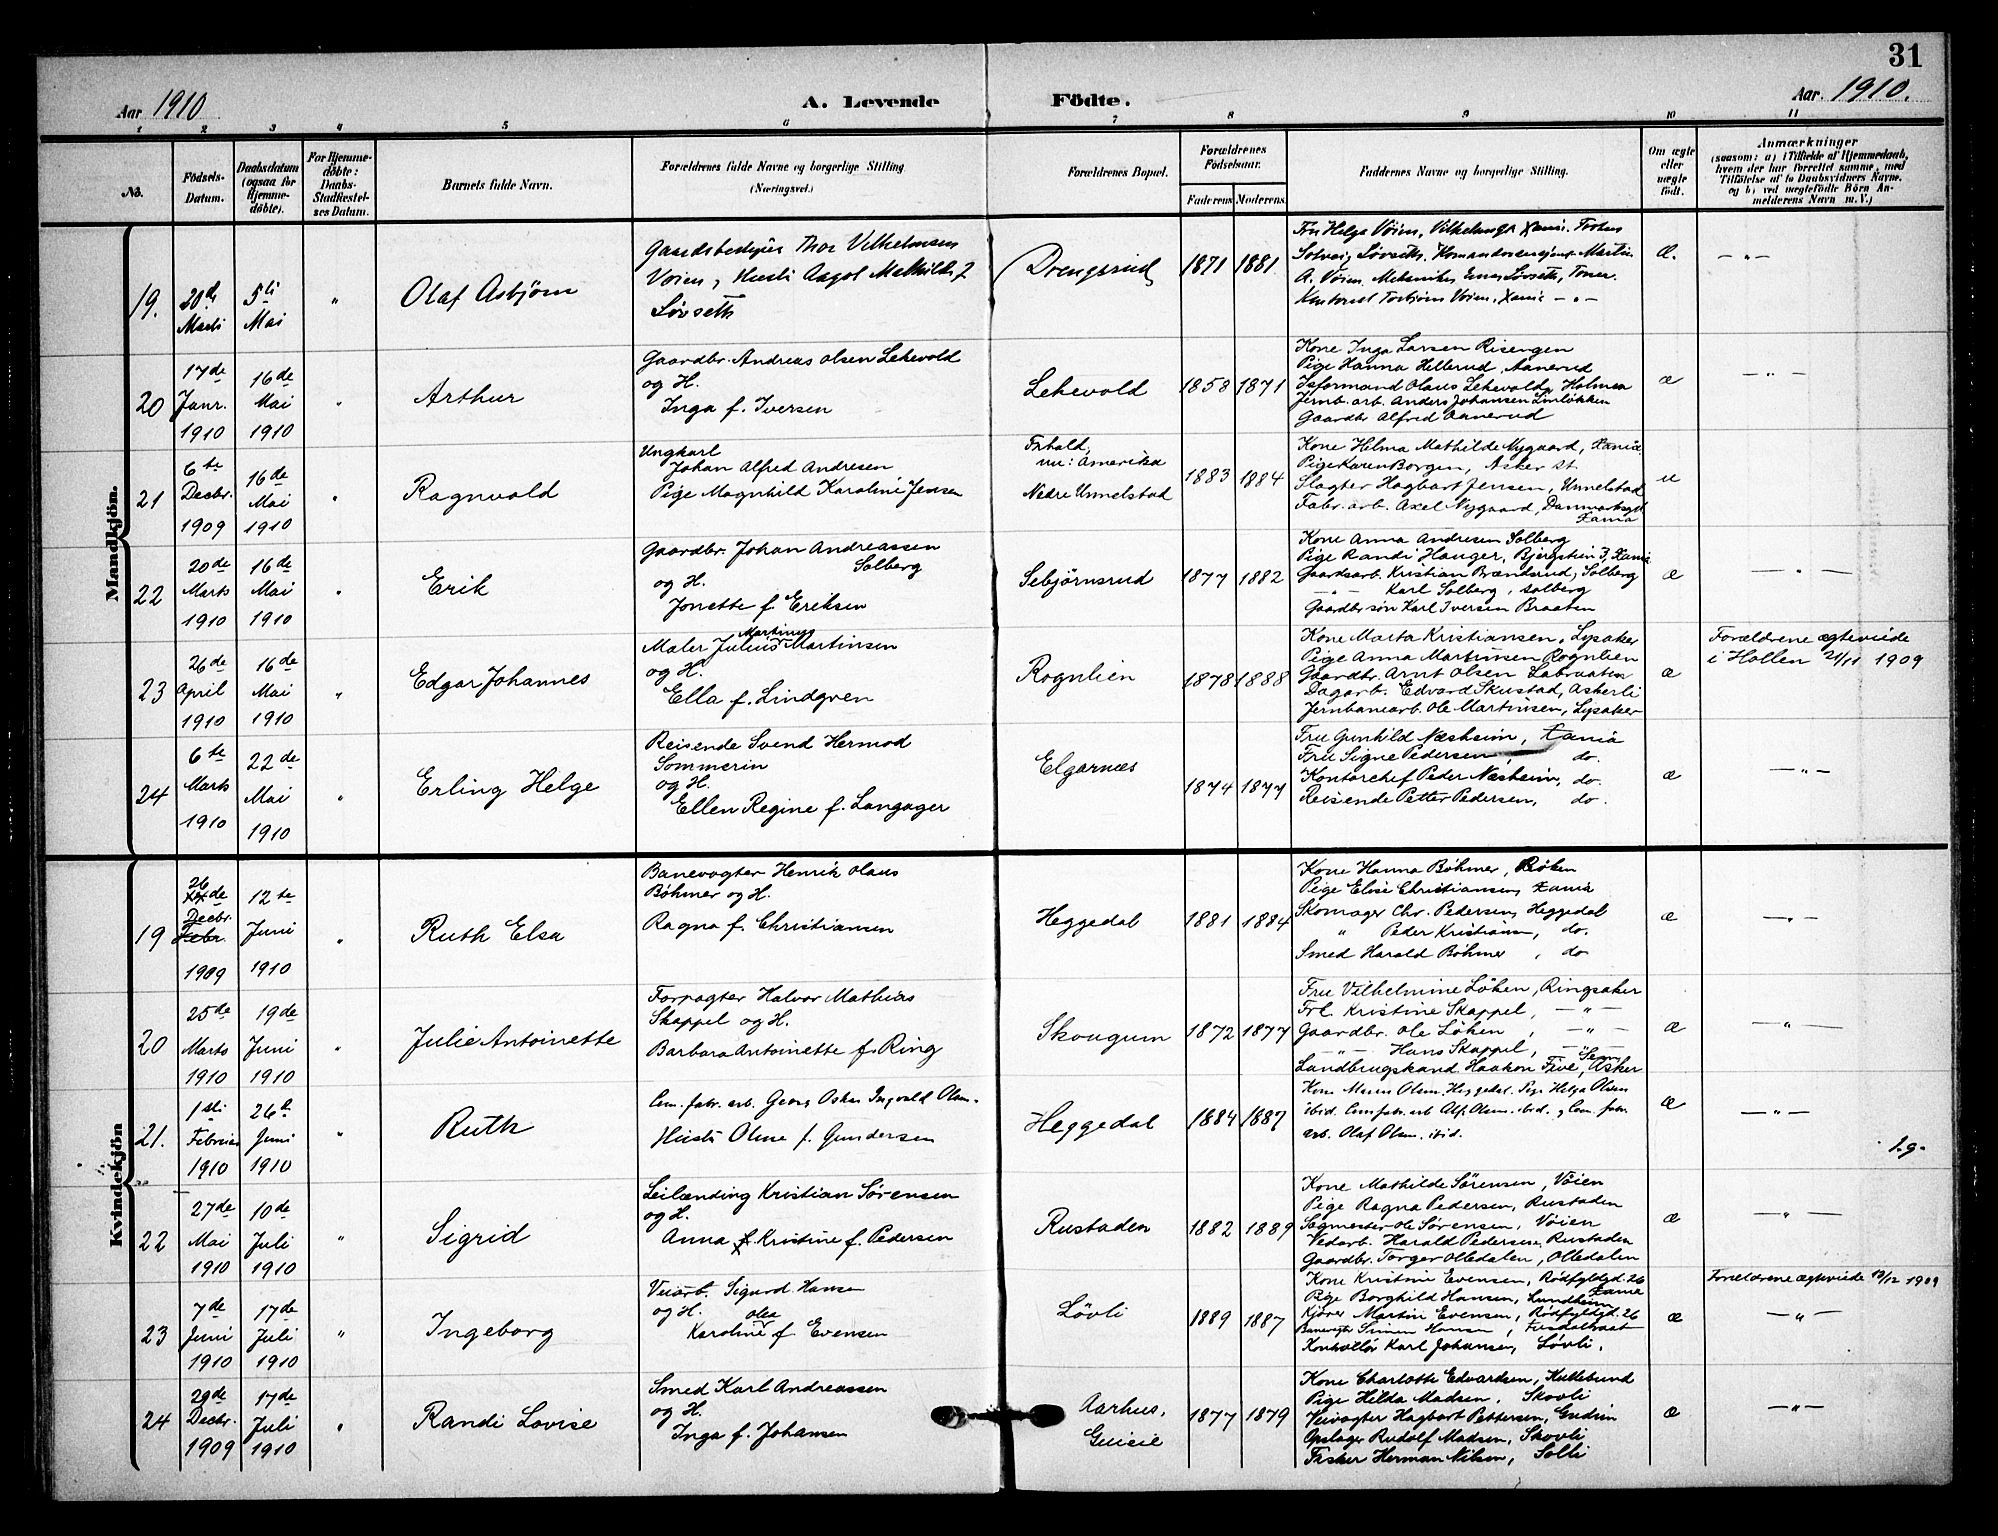 31
Aar 1910
A. Levende
Födte.
Aar 1910.
1 2 3 4 5 6 7 8 9 10 11
No.
Födsels-Datum.
Daabsdatum (ogsaa for Hjemme-döbte).
For Hjemme-döbte: Daabs-Stadfæstel-ses Datum.
Barnets fulde Navn.
Forældrenes fulde Navne og borgerlige Stilling
(Næringsvei.)
Forældrenes Bopæl.
Forældrenes Födselsaar.
Faderens Moderens
Faddernes Navne og borgerlige Stilling.
Om ægte eller uægte födt.
Anmærkninger
(saasom: a) i Tilfælde af Hjemmedaab,
hvem der har forrettet samme, med
Tilföielse af to Daabsvidners Navne,
og b) ved uægtefödte Börn An-
melderens Navn m. V.)
Mandkjön.
19. 20de Marts 5te Mai " Olaf Asbjörn
Gaardsbestyrer Thor Vilhelmsen
Voien, Hustru Aagot Mathilde f
Lövseth
Drengsrud 1871 1881
Fru Helga Vöien, Xania.
Solveig Lövseth, Martin
A. Vöien, Mekaniker Lövseth,
Kontorist Torbjörn Vöien, Xania — " —
Æ. — " —
20 17de Janr. 1910 16de Mai 1910 " Arthur
Gaardbr. Andreas Olsen Lekevold
og H.
Inga f. Iversen
Lekevold 1858 1871
Kone Inga Larsen Risengen
Pige Hanna Hellerud, Aanerud
Isformand Olaus Lekevold, Holmen
Jernb. arb. Anders Johansen Linlökken
Gaardbr Alfred Aanerud
æ — " —
21 6te Decbr. 1909 16de Mai 1910 " Ragnvald
Ungkarl
Johan Alfred Andresen
Pige Magnhild Karoline Jensen
Frhald,
nu: Amerika
Nedre Unnelstad
1883 1884
Kone Helma Mathilde Nygaard, Xania
Pige Karen Borgen, Asker st.
Slagter Hagbart Jensen, Unnelstad
Fabr. arb. Axel Nygaard, Danmarksgd.
Xania
u
22 20de Marts 1910 16de Mai 1910 " Erik
Gaardbr. Johan Andreassen
Solberg
og H.
Jonette f Eriksen
Sebjörnsrud 1877 1882
Kone Anna Andresen Solberg
Pige Randi Hauger, Bjergstien 3, Xania
Gaardsarb. Kristian Brændsrud, Solberg
— " — Karl Solberg, Solberg
Gaardbr sön Karl Iversen Braaten
æ — " —
23 26de April 1910 16de Mai 1910 " Edgar Johannes
Maler Julius Martinus Martinsen
og H.
Ella f. Lindgren
Rognlien 1878 1888
Kone Marta Kristiansen, Lysaker
Pige Anna Martinsen Rognlien
Gaardbr. Arnt Olsen Labraaten
Dagarb. Edvard Skustad, Askerli
Jernbanearb. Ole Martinsen, Lysaker
æ
Forældrene ægteviede
i Hollen 21/11 1909
24 6te Marts 1910 22de Mai 1910 " Erling Helge
Reisende Svend Hermod
Sommerin
og H.
Ellen Regine f. Langager
Elgarnæs 1874 1877
Fru Gunhild Næsheim, Xania
Fru Signe Pedersen, do.
Kontorchef Peder Næsheim, do.
Reisende Petter Pedersen, do.
æ — " —
Kvindekjön
19 26de Decbr. Febr. 1909 12te Juni 1910 " Ruth Elsa
Banevogter Henrik Olaus
Böhmer og H.
Ragna f. Christiansen
Heggedal 1881 1884
Kone Hanna Böhmer, Röken
Pige Elise Christiansen, Xania
Skomager Chr. Pedersen, Heggedal
" Peder Kristiansen, do.
Smed Harald Böhmer, do
æ — " —
20 25de Marts 1910 19de Juni 1910 " Julie Antoinette
Forpagter Halvor Mathias
Skappel og H.
Barbara Antoinette f. Ring
Skougum 1872 1877
Fru Vilhelmine Löken, Ringsaker
Frk Kristine Skappel, — " —
Gaardbr. Ole Löken, — " —
— " — Hans Skappel, — " —
Landbrugskand. Haakon Five, Sem, Asker
æ — " —
21. 1ste Februar 1910 26de Juni 1910 " Ruth
Cem. fabr. arb. Georg Oskar Ingvald Olsen.
Hustr Oline f. Gundersen
Heggedal 1884 1887
Kone Maren Olsen. Heggedal. Pige Helga Olsen
ibid. Cem. fabr. arb Alf. Olsen. ibid. og Cem. fabr.
arb. Olaf Olsen. ibid.
Æ — " —
22 27de Mai 1910 10de Juli 1910 " Sigrid
Leilænding Kristian Sörensen
og H.
Anna Kristine f. Pedersen
Rustaden 1882 1889
Kone Mathilde Sörensen, Vöien
Pige Ragna Pedersen, Rustaden
Sagmester Ole Sörensen, Vöien
Vedarb. Harald Pedersen, Rustaden
Gaardbr. Torger Olledalen, Olledalen
æ — " —
23 7de Juni 1910 17de Juli 1910 " Ingeborg
Veiarb. Sigurd Hansen
og H.
Karoline Olea f Evensen
Lövli 1889 1887
Kone Kristine Evensen, Rödfyldgd. 26
Xania
Pige Borghild Hansen, Lundheim
Kjörer Martin Evensen, Rödfyldgd. 26
Banevogter Simen Hansen,
Kontrollör Karl Johansen, Lövli.
æ
Forældrene ægteviede 19/12 1909
"
24 29de Decbr. 1909 17de Juli 1910 " Randi Lovise
Smed Karl Andreassen
og H.
Inga f. Johansen
Aarhus,
Guisie
1877 1879
Kone Charlotte Edvardsen, Kullebund
Pige Hilda Madsen, Skovli
Veivogter Hagbart Pettersen, Gudim
Opslager Rudolf Madsen, Skovli
Fisker Herman Nilsen, Solli
æ — " —